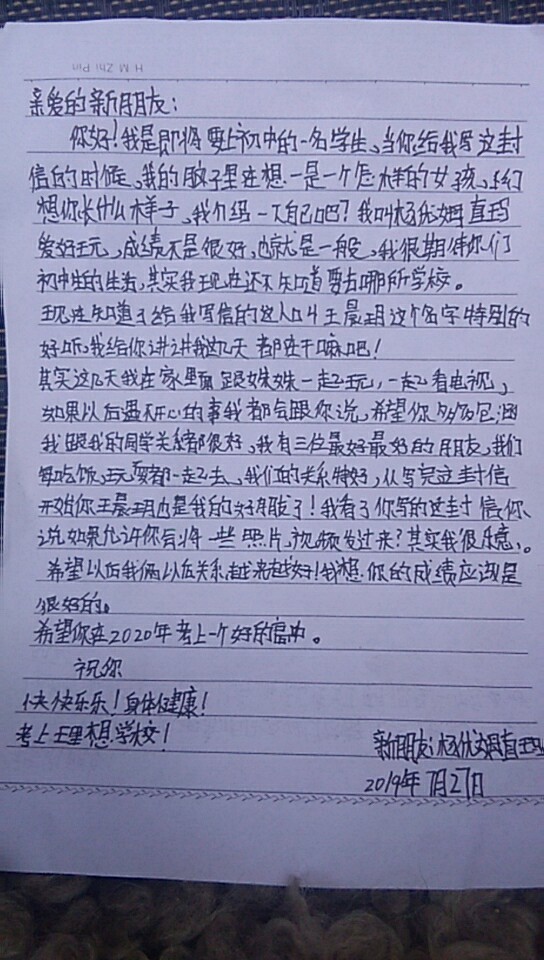 H M Zhi Pin
亲爱的新朋友:
你好!我是即将要上初中的一名学生、当你给我写这封
信的时候、我的脑子里在想一是一个怎样的女孩、
想你长什么样子、我介绍一下自己吧?我叫杨优姆直玛
爱好玩,成绩不是很好,也就是一般、我很期待你们
初中生的生活,其实我现在还不知道要去哪所学校。
现在知道了给我写信的这人叫王晨玥这个名字特别的
好听、我给你讲讲我这几天都在干嘛吧!
其实这几天我在家里面跟妹妹一起玩,一起看电视、
如果以后遇不开心的事我都会跟你说,希望你多多包涵
我跟我的同学关系都很好、我有三位最好最好的朋友、我们
每吃饭、玩耍都一起去、我们的关系特好,从写完这封信
开始你王晨玥也是我的好朋友了!我看了你写的这封信你、
说如果允许你会将一些照片,视频发过来?其实我很乐意、。
希望以后我俩以后关系越来越好!我想你的成绩应该是
很好的。
希望你在2020年考上一个好高中。
祝你
快快乐乐!身体健康!
考上理想学校!
新朋友:杨优姆直玛
2019年7月27日